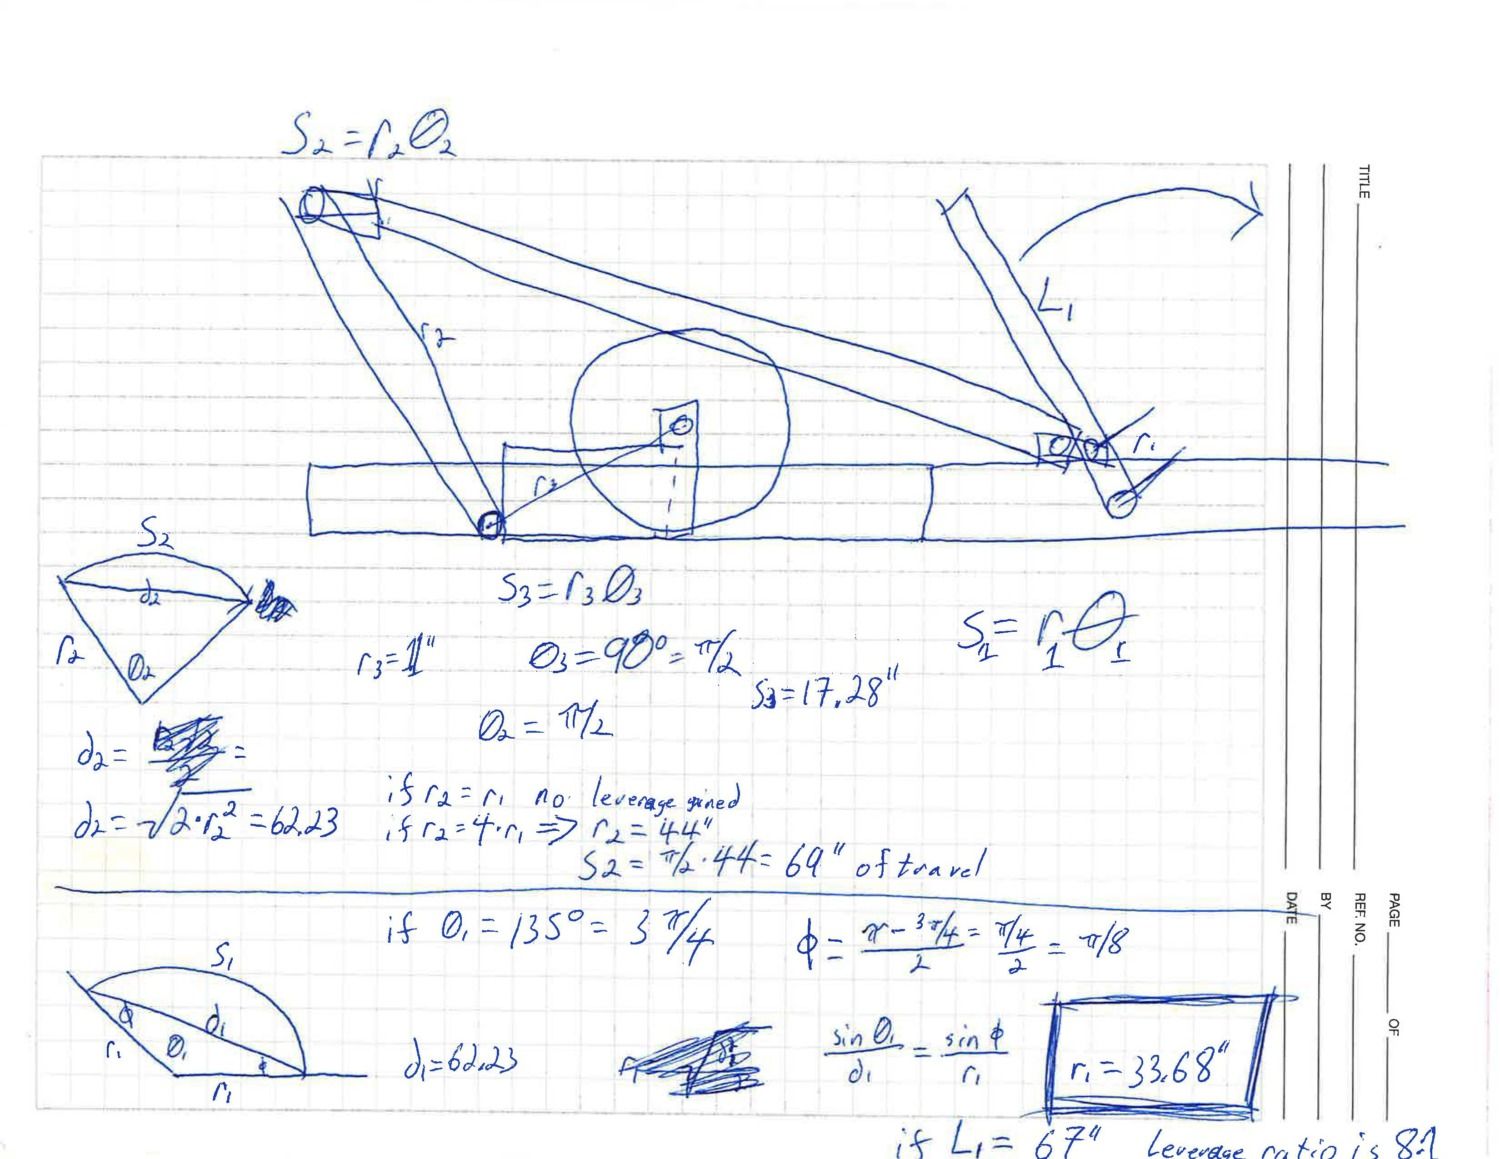 S₂ = r₂θ₂
TITLE
L₁
r₂
r₁
r₃
S₂
d₂
r₂
θ₂
S₃ = r₃θ₃
S₁ = r₁θ₁
r₃ = 11"
θ₃ = 90° = π/2
S₃ = 17.28"
θ₂ = π/2
d₂ = =
d₂ = √2·r₂² = 62.23
if r₂ = r₁ no leverage gained
if r₂ = 4·r₁ => r₂ = 44"
S2 = π/2·44 = 69" of travel
DATE
BY
REF. NO.
PAGE OF
if θ₁ = 135° = 3π/4
ϕ = (π - 3π/4)/2 = (π/4)/2 = π/8
S₁
ϕ
d₁
r₁
θ₁
ϕ
r₁
d₁ = 62.23
sin θ₁/d₁ = sin ϕ/r₁
r₁ = 33.68"
if L₁ = 67" Leverage ratio is 8:1